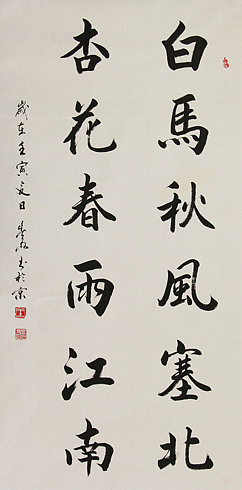 白馬秋風塞北
杏花春雨江南
歲在壬寅夏日
書於京